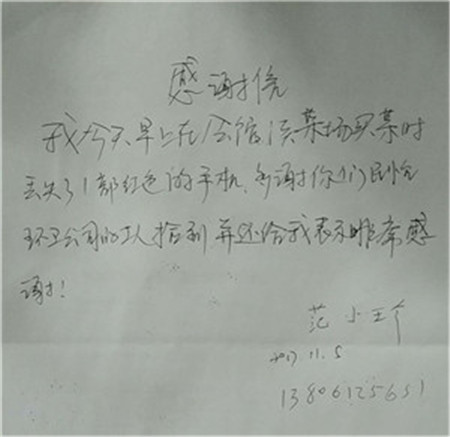 感谢信
我今天早上在会馆浜菜场买菜时
丢失了1部红色的手机，多谢你们
环卫公司的工人拾到并还给我表示非常感
谢！
范小
2017.11.5
13806125651